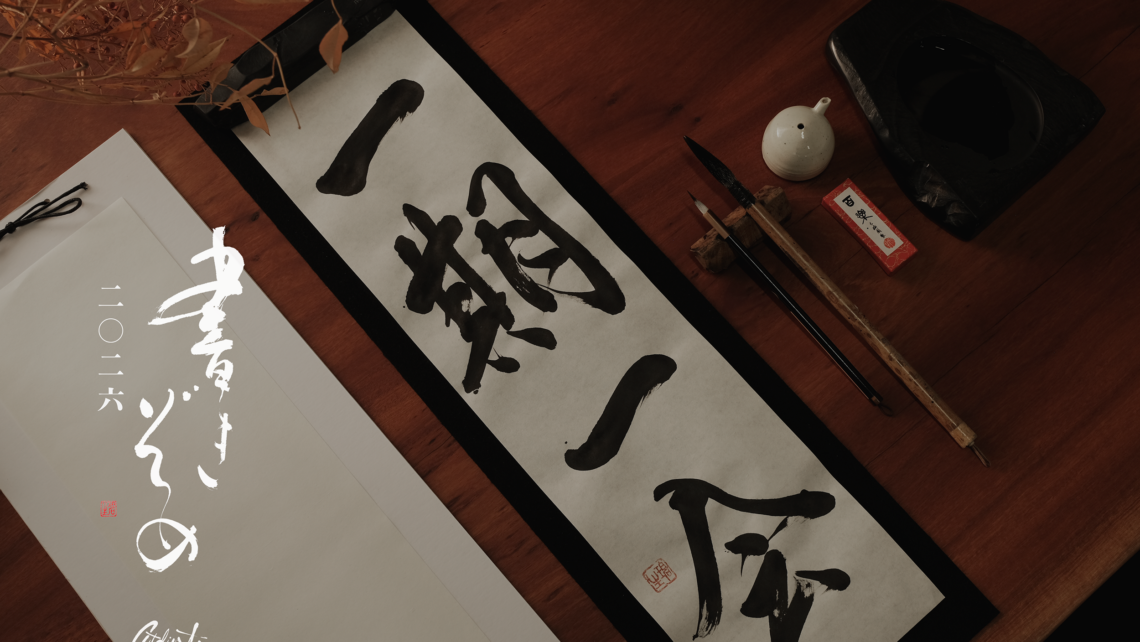 一期一会
書き
ぞめ
二〇二六